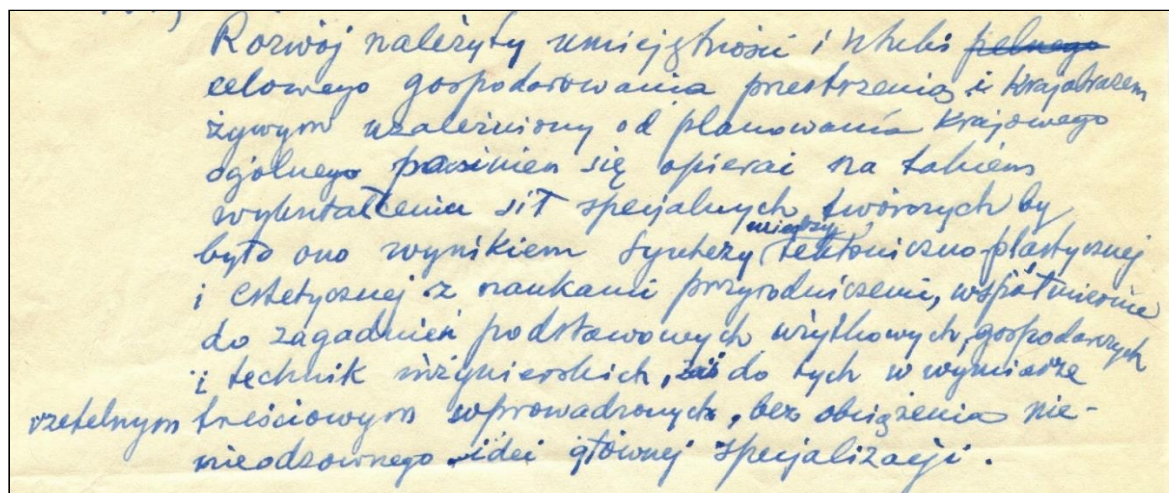 Rozwój należyty umiejętności i sztuki pełnego
celowego gospodarowania przestrzenią i krajobrazem
żywym uzależniony od planowania krajowego
ogólnego powinien się opierać na takiem
wykształceniu sił specjalnych, twórczych by
było ono wynikiem syntezy między tektoniczno-plastycznej
i estetycznej z naukami przyrodniczemi, współmiernie
do zagadnień podstawowych użytkowych, gospodarczych
i technik inżynierskich, do tych w wymiarze
rzetelnym treściowym wprowadzonych, bez obciążenia nie-
nieodzownego idei głównej specjalizacji.